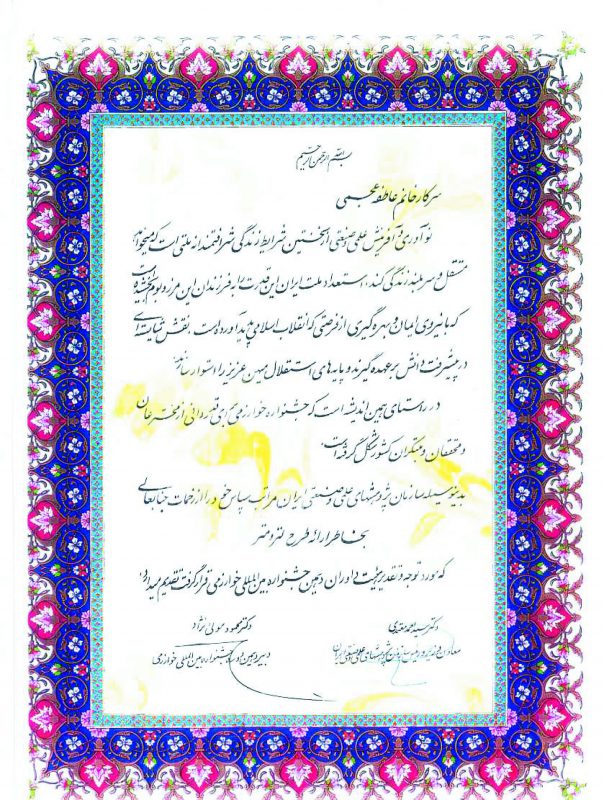 بسم الله الرحمن الرحیم
سرکار خانم عاطفه محسبی
نوآوری و آفرینش علمی و صنعتی از نخستین شرایط زندگی شرافتمندانه ملتی است که میخواهد
مستقل و سربلند زندگی کند. استعداد ملت ایران این قدرت را به فرزندان این مرز و بوم بخشیده است
که با نیروی ایمان و بهره گیری از فرصتی که انقلاب اسلامی پدید آورده است، نقش شایسته ای
در پیشرفت دانش بر عهده گیرند و پایه های استقلال میهن عزیز را استوار سازند.
در راستای همین اندیشه است که جشنواره خوارزمی برای قدردانی از مخترعان
و محققان و مبتکران کشور شکل گرفته است.
بدینوسیله سازمان پژوهشهای علمی و صنعتی ایران مراتب سپاس خود را از زحمات جنابعالی
بخاطر ارائه طرح لنزومتر
که مورد توجه و تقدیر هیئت داوران دهمین جشنواره بین المللی خوارزمی قرار گرفت تقدیم میدارد.
دکتر سید احمد معتمدی
معاون وزیر و رییس سازمان پژوهشهای علمی و صنعتی ایران
دکتر محمود مولی نژاد
دبیر دهمین دوره جشنواره بین المللی خوارزمی